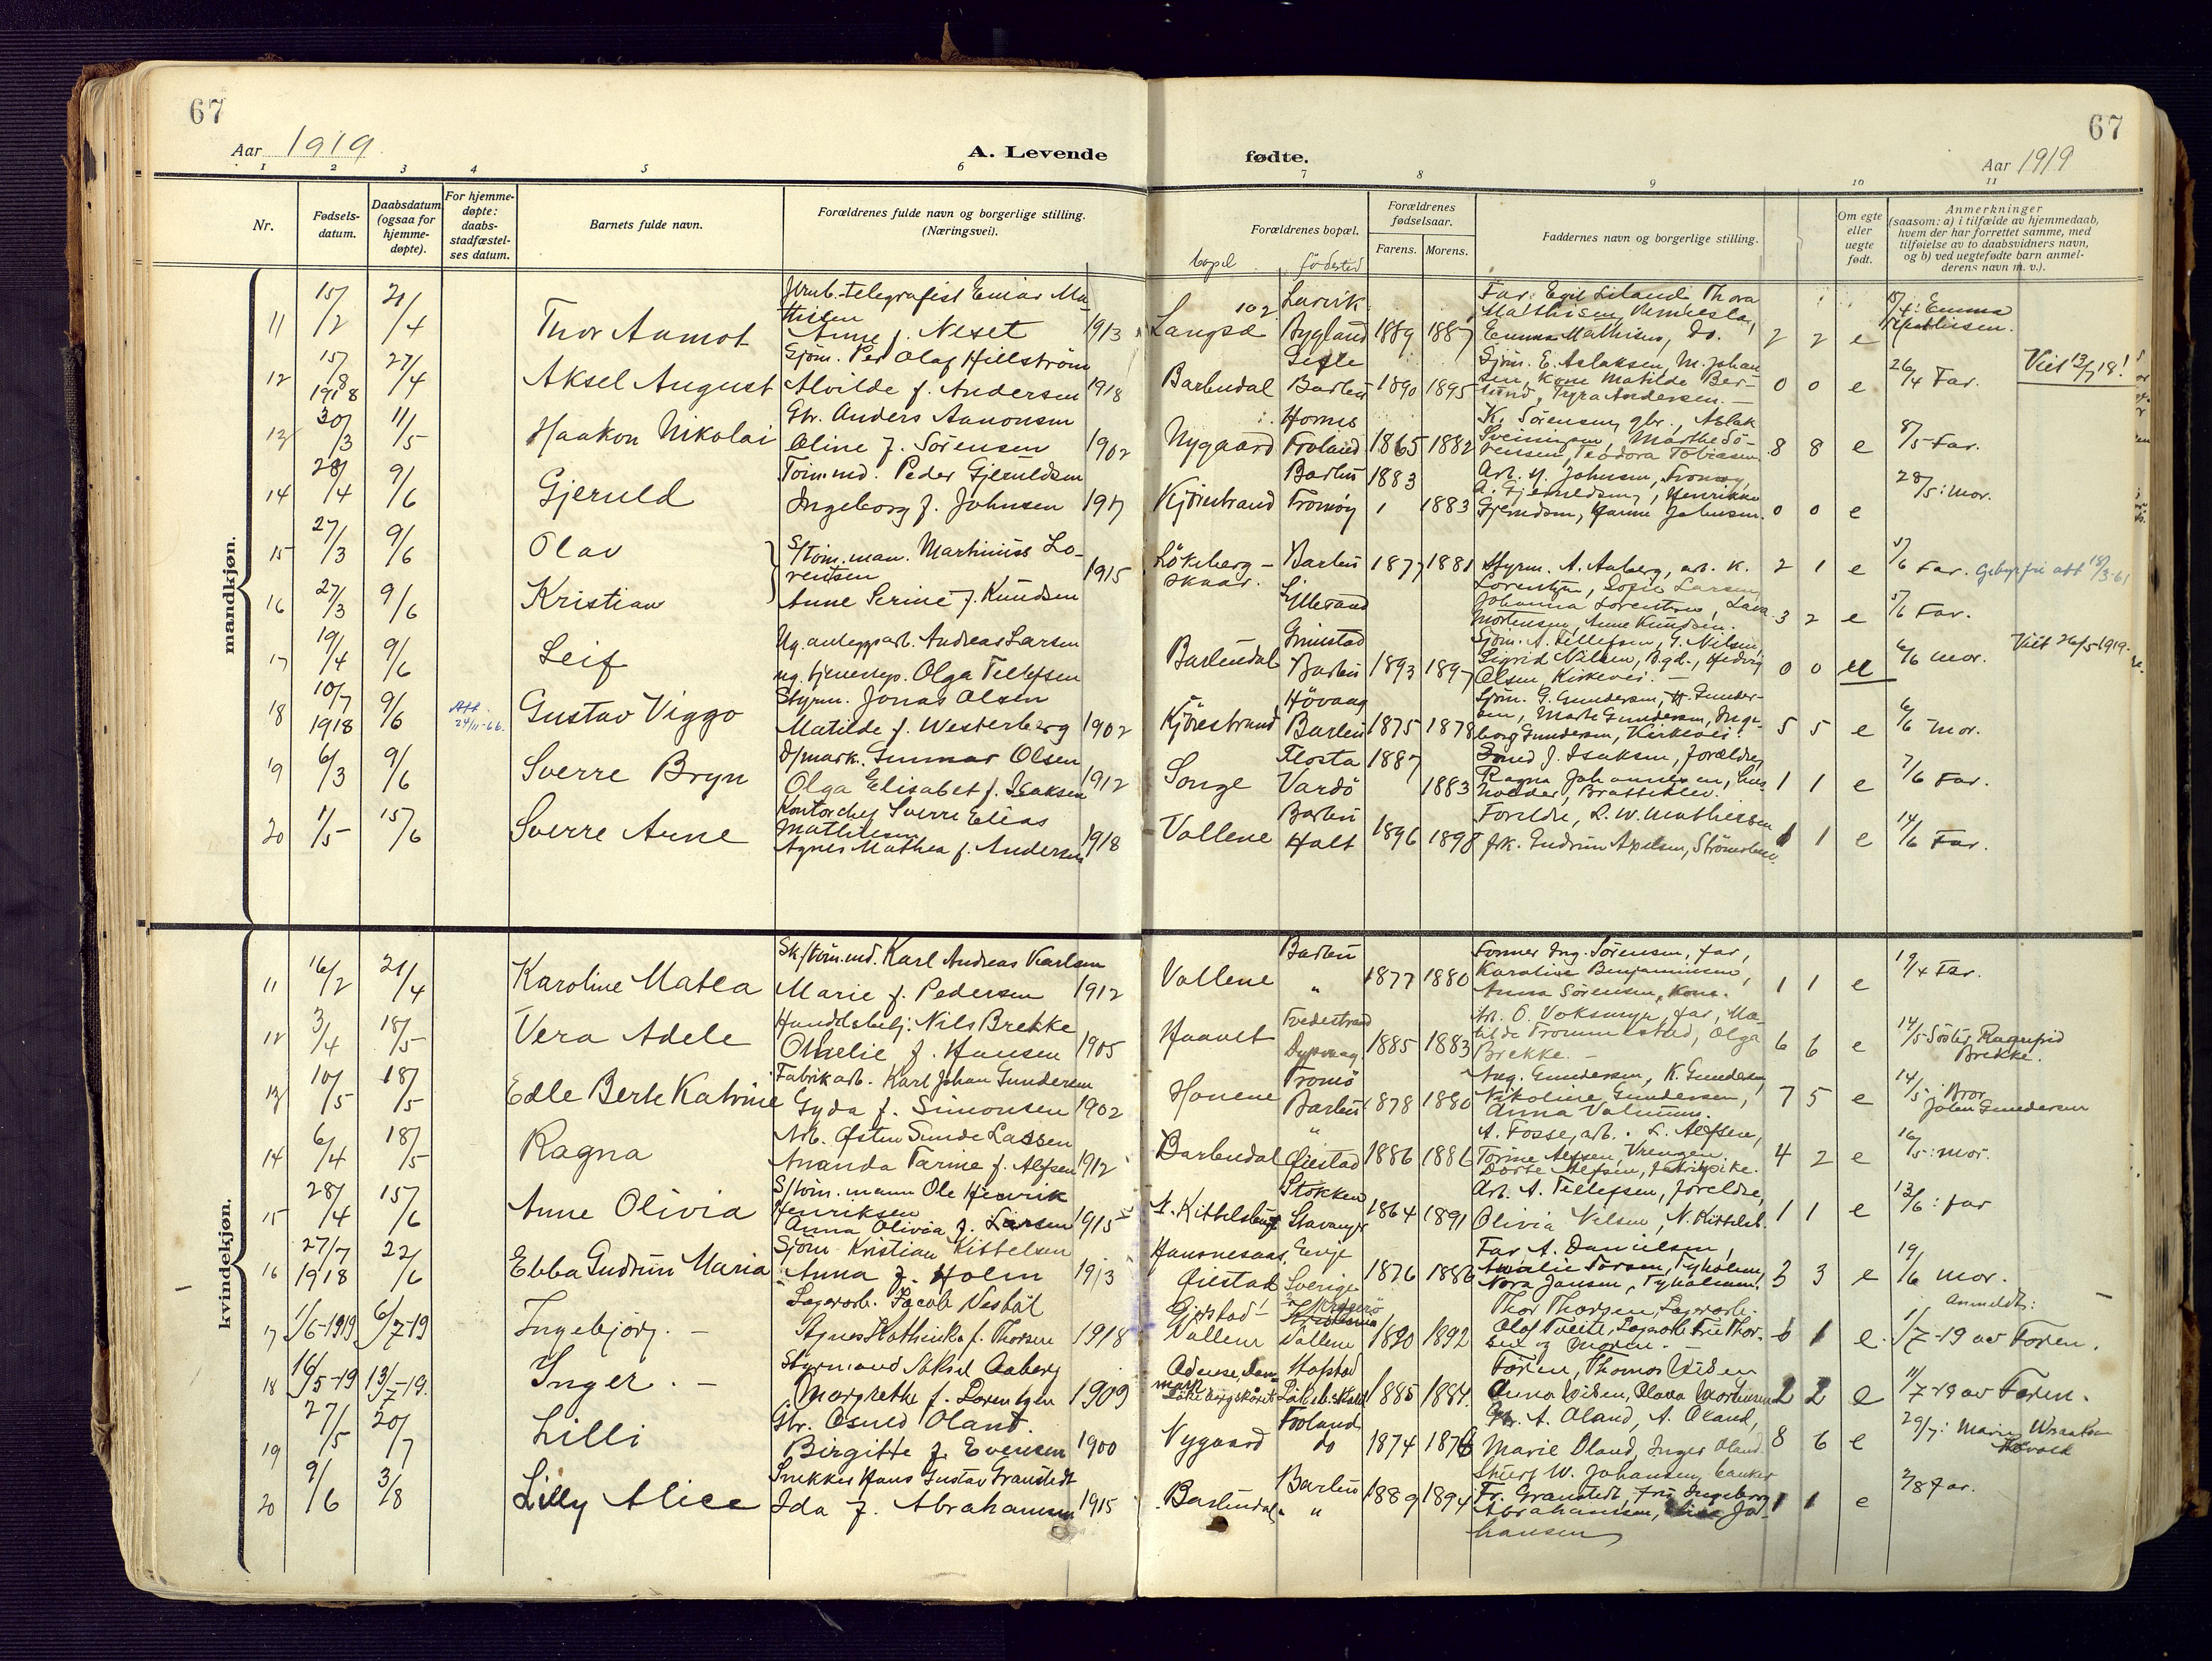 67
67
Aar 1919
A. Levende
fødte.
Aar 1919
1 2 3 4 5 6 7 8 9 10 11
Nr.
Fødsels-
datum.
Daabsdatum
(ogsaa for
hjemme-
døpte).
For hjemme-
døpte:
daabs-
stadfæstel-
ses datum.
Barnets fulde navn.
Forældrenes fulde navn og borgerlige stilling.
(Næringsvei).
Forældrenes bopæl.
bopel fødested
Forældrenes
fødselsaar.
Farens. Morens.
Faddernes navn og borgerlige stilling.
Om egte
eller
uegte
født.
Anmerkninger
(saasom: a) i tilfælde av hjemmedaab,
hvem der har forrettet samme, med
tilføielse av to daabsvidners navn,
og b) ved uegtefødte barn anmel-
derens navn m. v.).
mandkjøn.
11 15/2 21/4 Thor Aamot
Jernb.telegrafist Einar Ma-
thisen
Anne f. Neset 1913
Langsæ 102 Larvik
Bygland 1889 1887
Far. Egil Liland, Thora
Mathisen,
Emma Mathisen, do. 2 2 e
Emma
Mathisen.
12 15/8 1918 27/4 Aksel August
Sjøm. Per Olaf Hillström
Alvilde f. Andersen 1918
Barbudal Gefle
Barbu 1890 1895
Sjøm. E. Aslaksen, M. Johan-
sen, Kone Matilde Ber-
lund, Tyra Andersen. – 0 0 e
26/4 Far. Viet 13/7 18!
13 30/3 11/5 Haakon Nikolai
Gbr. Anders Aanonsen
Oline f. Sørensen 1902
Nygaard Hornes
Froland 1865 1882
K. Sørensen, gbr., Aslak
Marthe Sø-
rensen, Teodora Tobiasen. 8 8 e
8/5 Far.
14 28/4 9/6 Gjeruld
Tømmd. Peder Gjeruldsen
Ingeborg f. Johnsen 1917
Kjörrestrand Barbu 1883
Tromøy 1883
Arb. Johnsen, Tromøy,
Henrikke
Johnsen. 0 0 e
28/5: Mor.
15 27/3 9/6 Olav
S/tøm.man. Martinius Lo-
rentsen 1915
Løkeberg-
skaar. Barbu 1877 1881
Styrm. A. Aaberg, arb. K. 2 1 e
5/6 Far. Gebyrfri att 18/3-61
16 27/3 9/6 Kristian
Anne Serine f. Knudsen
Lorentzen, Sofie Larsen
Johanna Lorentzen,
Mortensen, Anne Knudsen. 3 2 e
5/6 Far.
17 19/4 9/6 Leif
Ug. anleggsarb. Andreas Larsen
ug. tjenestep. Olga Tellefsen
Barbudal Grimstad
Barbu 1893 1897
Sjøm. A. Tellefsen, G. Nilsen,
Sigrid Nilsen, B.gd., Hedvig
Olsen, Kirkevei. – 0 0 u
6/6 Mor. Viet 26/5-1919.
18 10/7 1918 9/6 Att. 24/11-66. Gustav Viggo
Styrm. Jonas Olsen
Matilde f. Westerberg 1902
Kjörrestrand Høvaag
Barbu 1875 1878
Sjøm. G. Gundersen, H. Gunder-
sen, Marte Gundersen, Inge-
borg Gundersen, Kirkevei. 5 5 e
6/6 Mor.
19 6/3 9/6 Sverre Bryn
D/mask. Gunnar Olsen
Olga Elisabet f. Isaksen 1912
Songe Flosta 1887
Vardö 1883
Smed J. Isaksen, forældre,
Ragna Johannesen, hus-
holder, Brattekleiv. 1 1 e
7/6 Far.
20 1/5 15/6 Sverre Arne
Kontorchef Sverre Elias
Mathiesen
Agnes Mathea f. Andersen 1918
Vallene Barbu
Holt 1896 1898
Foreldre, L. W. Mathiesen
frk. Gudrun Apelsen, Strömsbu. 1 1 e
14/6 Far.
kvindekjøn.
11 16/2 21/4 Karoline Matea
Sk/tøm.md. Karl Andreas Karlsen
Marie f. Pedersen 1912
Vallene Barbu
" 1877 1880
Former Ing. Sørensen, far,
Karoline Benjaminsen,
Anna Sørensen, Kone. 1 1 e
19/4 Far.
12 3/4 18/5 Vera Adele
Handelsbetj. Nils Brekke
Omelie f. Hansen 1905
Haavet Tvedestrand
Dypvaag 1885 1883
far, Ma-
tilde Trommestad, Olga
Brekke. – 6 6 e
14/5 Søster Ragnfrid
Brekke.
13 10/5 18/5 Edle Berte Katrine
Fabrikarb. Karl Johan Gundersen
Gyda f. Simonsen 1902
Honene Tromö
Barbu 1878 1880
Aug. Gundersen, K. Gundersen,
Nikoline Gundersen,
Anna 7 5 e
14/5: Bror
Johan Gundersen
14 6/4 18/5 Ragna
Arb. Østen Sunde Lassen
Ananda Tarine f. Alfsen 1912
Barbudal "
Øiestad 1886 1886
A. Fosse, arb. L. Alfsen,
Torine Alfsen, Vrengen.
Dorte Alfsen, 4 2 e
16/5: Mor.
15 28/4 15/6 Anne Olivia
S/tøm.mann Ole Henrik
Henriksen
Anna Olivia f. Larsen 1915
N. Kittelsbugt Stokken
Stavanger 1864 1891
Arb. A. Tellefsen, foreldre,
Olivia Nilsen, N. Kittelsb. 1 1 e
13/6: far
16 27/7 1918 22/6 Ebba Gudrun Maria
Sjøm. Kristian Kittelsen
Anna f. Holm 1913
Hansnesaas,
Øiestad Evje
Sverige 1876 1886
Far A. Danielsen,
Amalie Larsen, Tyholmen,
Nora Jansen, Tyholmen. 3 3 e
19/6 Mor.
17 1/6-1919 6/7-19 Ingebjørg. –
Lagerarb. Jacob Vesbøl
Agnes Kathinka f. Thorsen 1918
Gjerstad
Vallene
Vallene 1890 1892
Thor Thorsen, Lagerarb.
Olof Tveite, Lagerarb. Fru Thor-
sen og Moren. – 1 e.
Anmeldt:
1/7-19 av Faren.
18 16/5-19 13/7-19. Inger. –
Styrmand Aksel Aaberg
Margrethe f. Lorentzen 1909
Odense, Dan-
mark
Hafstad
1885 1884.
Faren, Thomas Wiben
Anna Wiben, Olava Mortensen 2 2 e
11/7-19 av Faren.
19 27/5 20/7 Lilli
Gbr. Osuld Oland.
Birgitte f. Evensen 1900
Nygaard Froland
do 1874 1876
Gbr. A. Oland, A. Oland,
Marie Oland, Inger Oland. 8 6 e
29/7: Marie
20 9/6 3/8 Lilly Alice
Snekker Hans Gustav Granstedt
Ida f. Abrahamsen 1915
Barbudal. Barbu
" 1889 1894
W. Johansen,
Fr. Granstedt, fru Ingeborg
Abrahamsen, Jo-
hansen 1 1 e
2/8 Far.